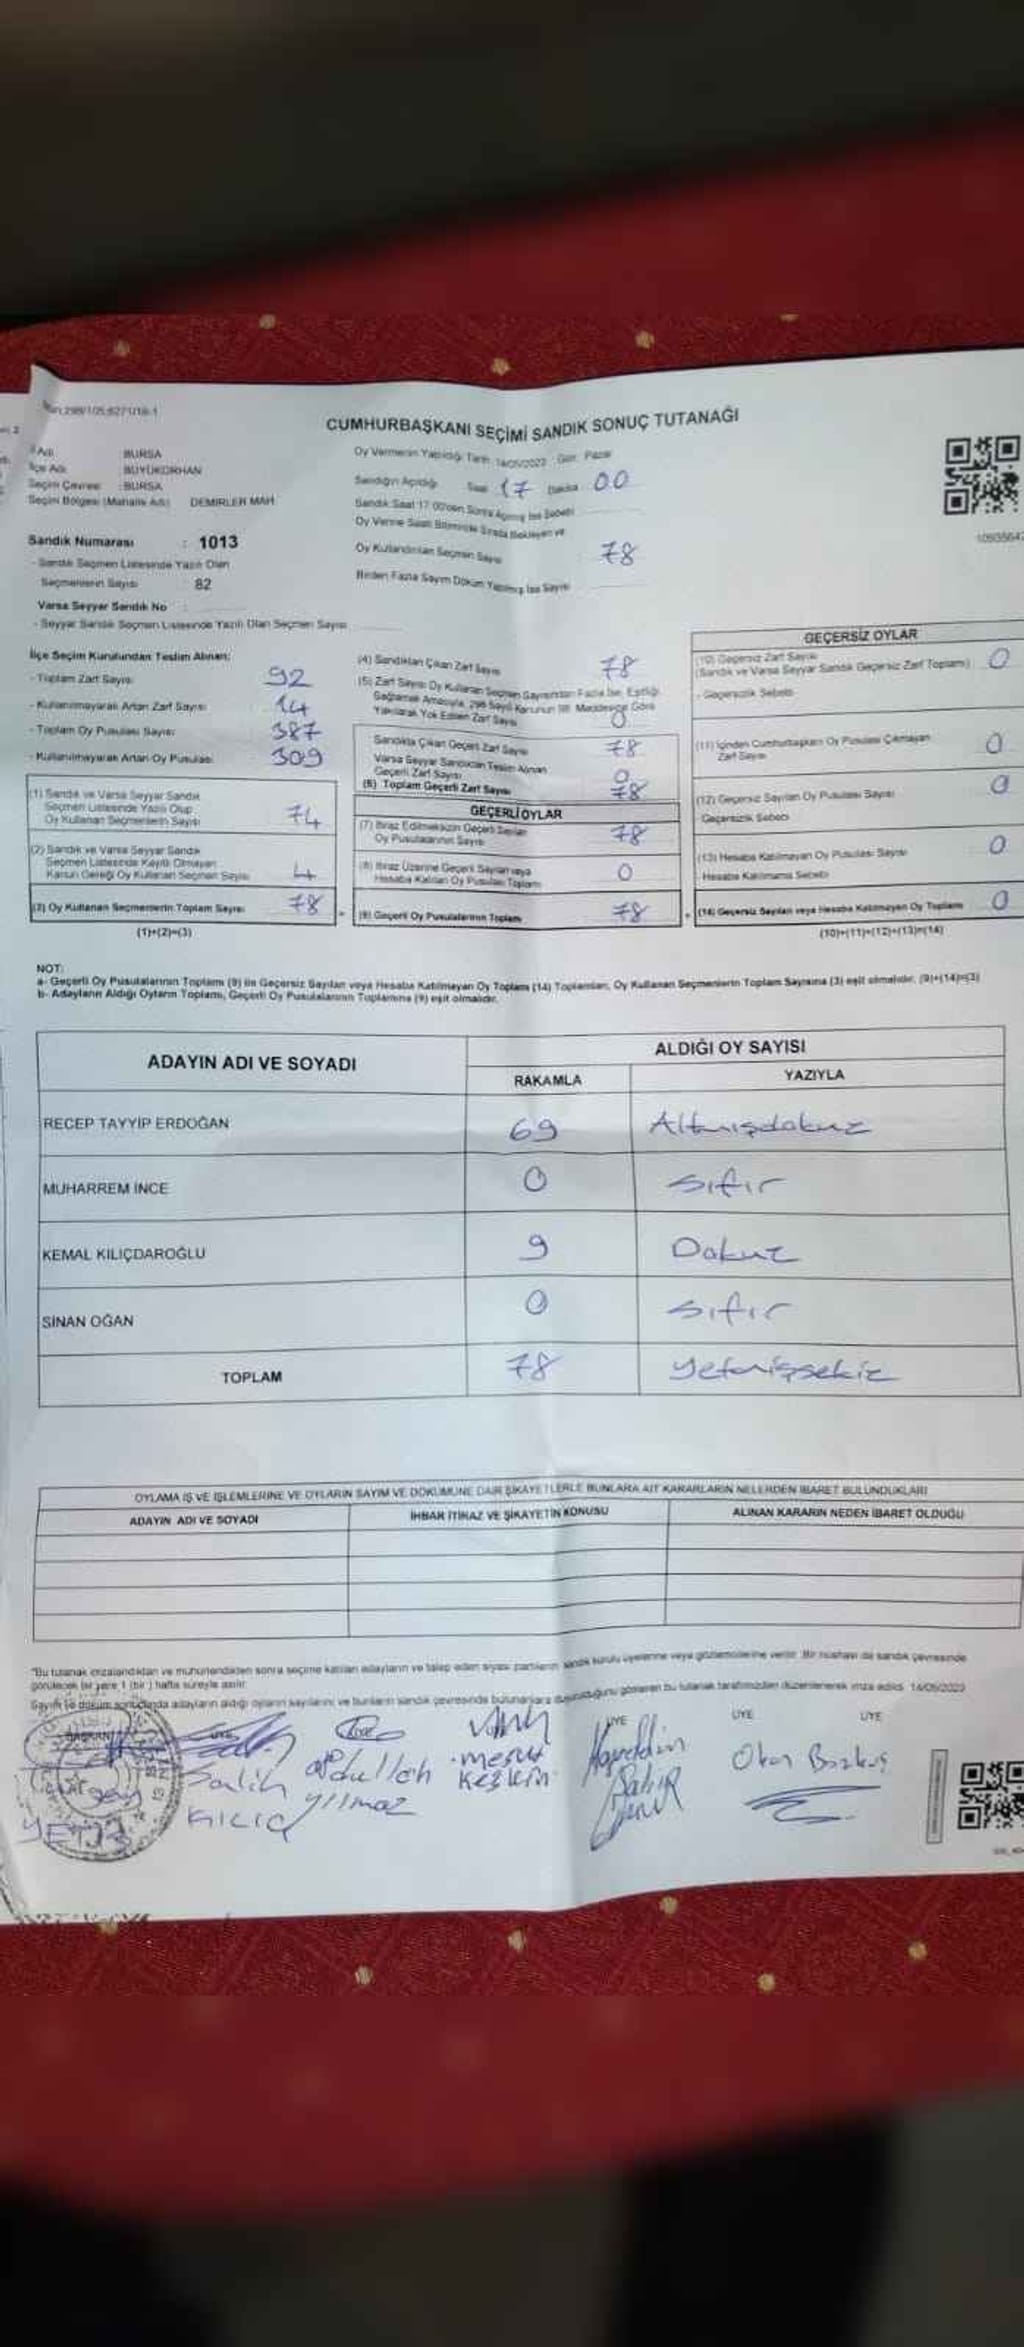 CUMHURBAŞKANI SEÇİMİ SANDIK SONUÇ TUTANAĞI
İl Adı BURSA
İlçe Adı BÜYÜKORHAN
Seçim Çevresi : BURSA
Seçim Bölgesi (Mahalle Adı) DEMİRLER MAH
Sandık Numarası : 1013
- Sandık Seçmen Listesinde Yazılı Olan
Seçmenlerin Sayısı 82
Varsa Seyyar Sandık No :
- Seyyar Sandık Seçmen Listesinde Yazılı Olan Seçmen Sayısı
Oy Vermenin Yapıldığı Tarih 14/05/2023 Gün: Pazar
Sandığın Açıldığı Saat 17 Dakika 00
Sandık Saat 17:00'den Sonra Açılmış İse Sebebi
Oy Verme Saati Bitiminde Sırada Bekleyen ve
Oy Kullandırılan Seçmen Sayısı 78
Birden Fazla Sayım Döküm Yapılmış İse Sayısı
İlçe Seçim Kurulundan Teslim Alınan:
- Toplam Zarf Sayısı 92
- Kullanılmayarak Artan Zarf Sayısı 14
- Toplam Oy Pusulası Sayısı 387
- Kullanılmayarak Artan Oy Pusulası 309
(1) Sandık ve Varsa Seyyar Sandık
Seçmen Listesinde Yazılı Olup
Oy Kullanan Seçmenlerin Sayısı 74
(2) Sandık ve Varsa Seyyar Sandık
Seçmen Listesinde Kayıtlı Olmayan
Kanun Gereği Oy Kullanan Seçmen Sayısı 4
(3) Oy Kullanan Seçmenlerin Toplam Sayısı 78
(1)+(2)=(3)
(4) Sandıktan Çıkan Zarf Sayısı 78
(5) Zarf Sayısı Oy Kullanan Seçmen Sayısından Fazla İse, Eşitliği
Sağlamak Amacıyla, 298 Sayılı Kanunun 98. Maddesine Göre
Yakılarak Yok Edilen Zarf Sayısı 0
Sandıkta Çıkan Geçerli Zarf Sayısı 78
Varsa Seyyar Sandıktan Teslim Alınan
Geçerli Zarf Sayısı 0
(6) Toplam Geçerli Zarf Sayısı 78
GEÇERLİ OYLAR
(7) İtiraz Edilmeksizin Geçerli Sayılan
Oy Pusulalarının Sayısı 78
(8) İtiraz Üzerine Geçerli Sayılan veya
Hesaba Katılan Oy Pusulası Toplamı 0
(9) Geçerli Oy Pusulalarının Toplamı 78
GEÇERSİZ OYLAR
(10) Geçersiz Zarf Sayısı
(Sandık ve Varsa Seyyar Sandık Geçersiz Zarf Toplamı) 0
- Geçersizlik Sebebi
(11) İçinden Cumhurbaşkanı Oy Pusulası Çıkmayan
Zarf Sayısı 0
(12) Geçersiz Sayılan Oy Pusulası Sayısı 0
Geçersizlik Sebebi
(13) Hesaba Katılmayan Oy Pusulası Sayısı 0
Hesaba Katılmama Sebebi
(14) Geçersiz Sayılan veya Hesaba Katılmayan Oy Toplamı 0
(10)+(11)+(12)+(13)=(14)
NOT:
a- Geçerli Oy Pusulalarının Toplamı (9) ile Geçersiz Sayılan veya Hesaba Katılmayan Oy Toplamı (14) Toplamları, Oy Kullanan Seçmenlerin Toplam Sayısına (3) eşit olmalıdır. (9)+(14)=(3)
b- Adayların Aldığı Oyların Toplamı, Geçerli Oy Pusulalarının Toplamına (9) eşit olmalıdır.
ADAYIN ADI VE SOYADI
ALDIĞI OY SAYISI
RAKAMLA YAZIYLA
RECEP TAYYİP ERDOĞAN 69 Altmışdokuz
MUHARREM İNCE 0 sıfır
KEMAL KILIÇDAROĞLU 9 Dokuz
SİNAN OĞAN 0 sıfır
TOPLAM 78 yetmişsekiz
OYLAMA İŞ VE İŞLEMLERİNE VE OYLARIN SAYIM VE DÖKÜMÜNE DAİR ŞİKAYETLERLE BUNLARA AİT KARARLARIN NELERDEN İBARET BULUNDUKLARI
ADAYIN ADI VE SOYADI İHBAR İTİRAZ VE ŞİKAYETİN KONUSU ALINAN KARARIN NEDEN İBARET OLDUĞU
*Bu tutanak imzalandıktan ve mühürlendikten sonra seçime katılan adayların ve talep eden siyasi partilerin sandık kurulu üyelerine veya gözlemcilerine verilir. Bir nüshası da sandık çevresinde
görülecek bir yere 1 (bir) hafta süreyle asılır.
Sayım ve döküm sonucunda adayların aldığı oyların sayılarını ve bunların sandık çevresinde bulunanlara duyurulduğunu gösteren bu tutanak tarafımızdan düzenlenerek imza edildi. 14/05/2023
BAŞKAN ÜYE ÜYE ÜYE ÜYE
Salih Abdullah mesut Hayreddin Okan Bozkuş
KILIÇ yılmaz Keskin